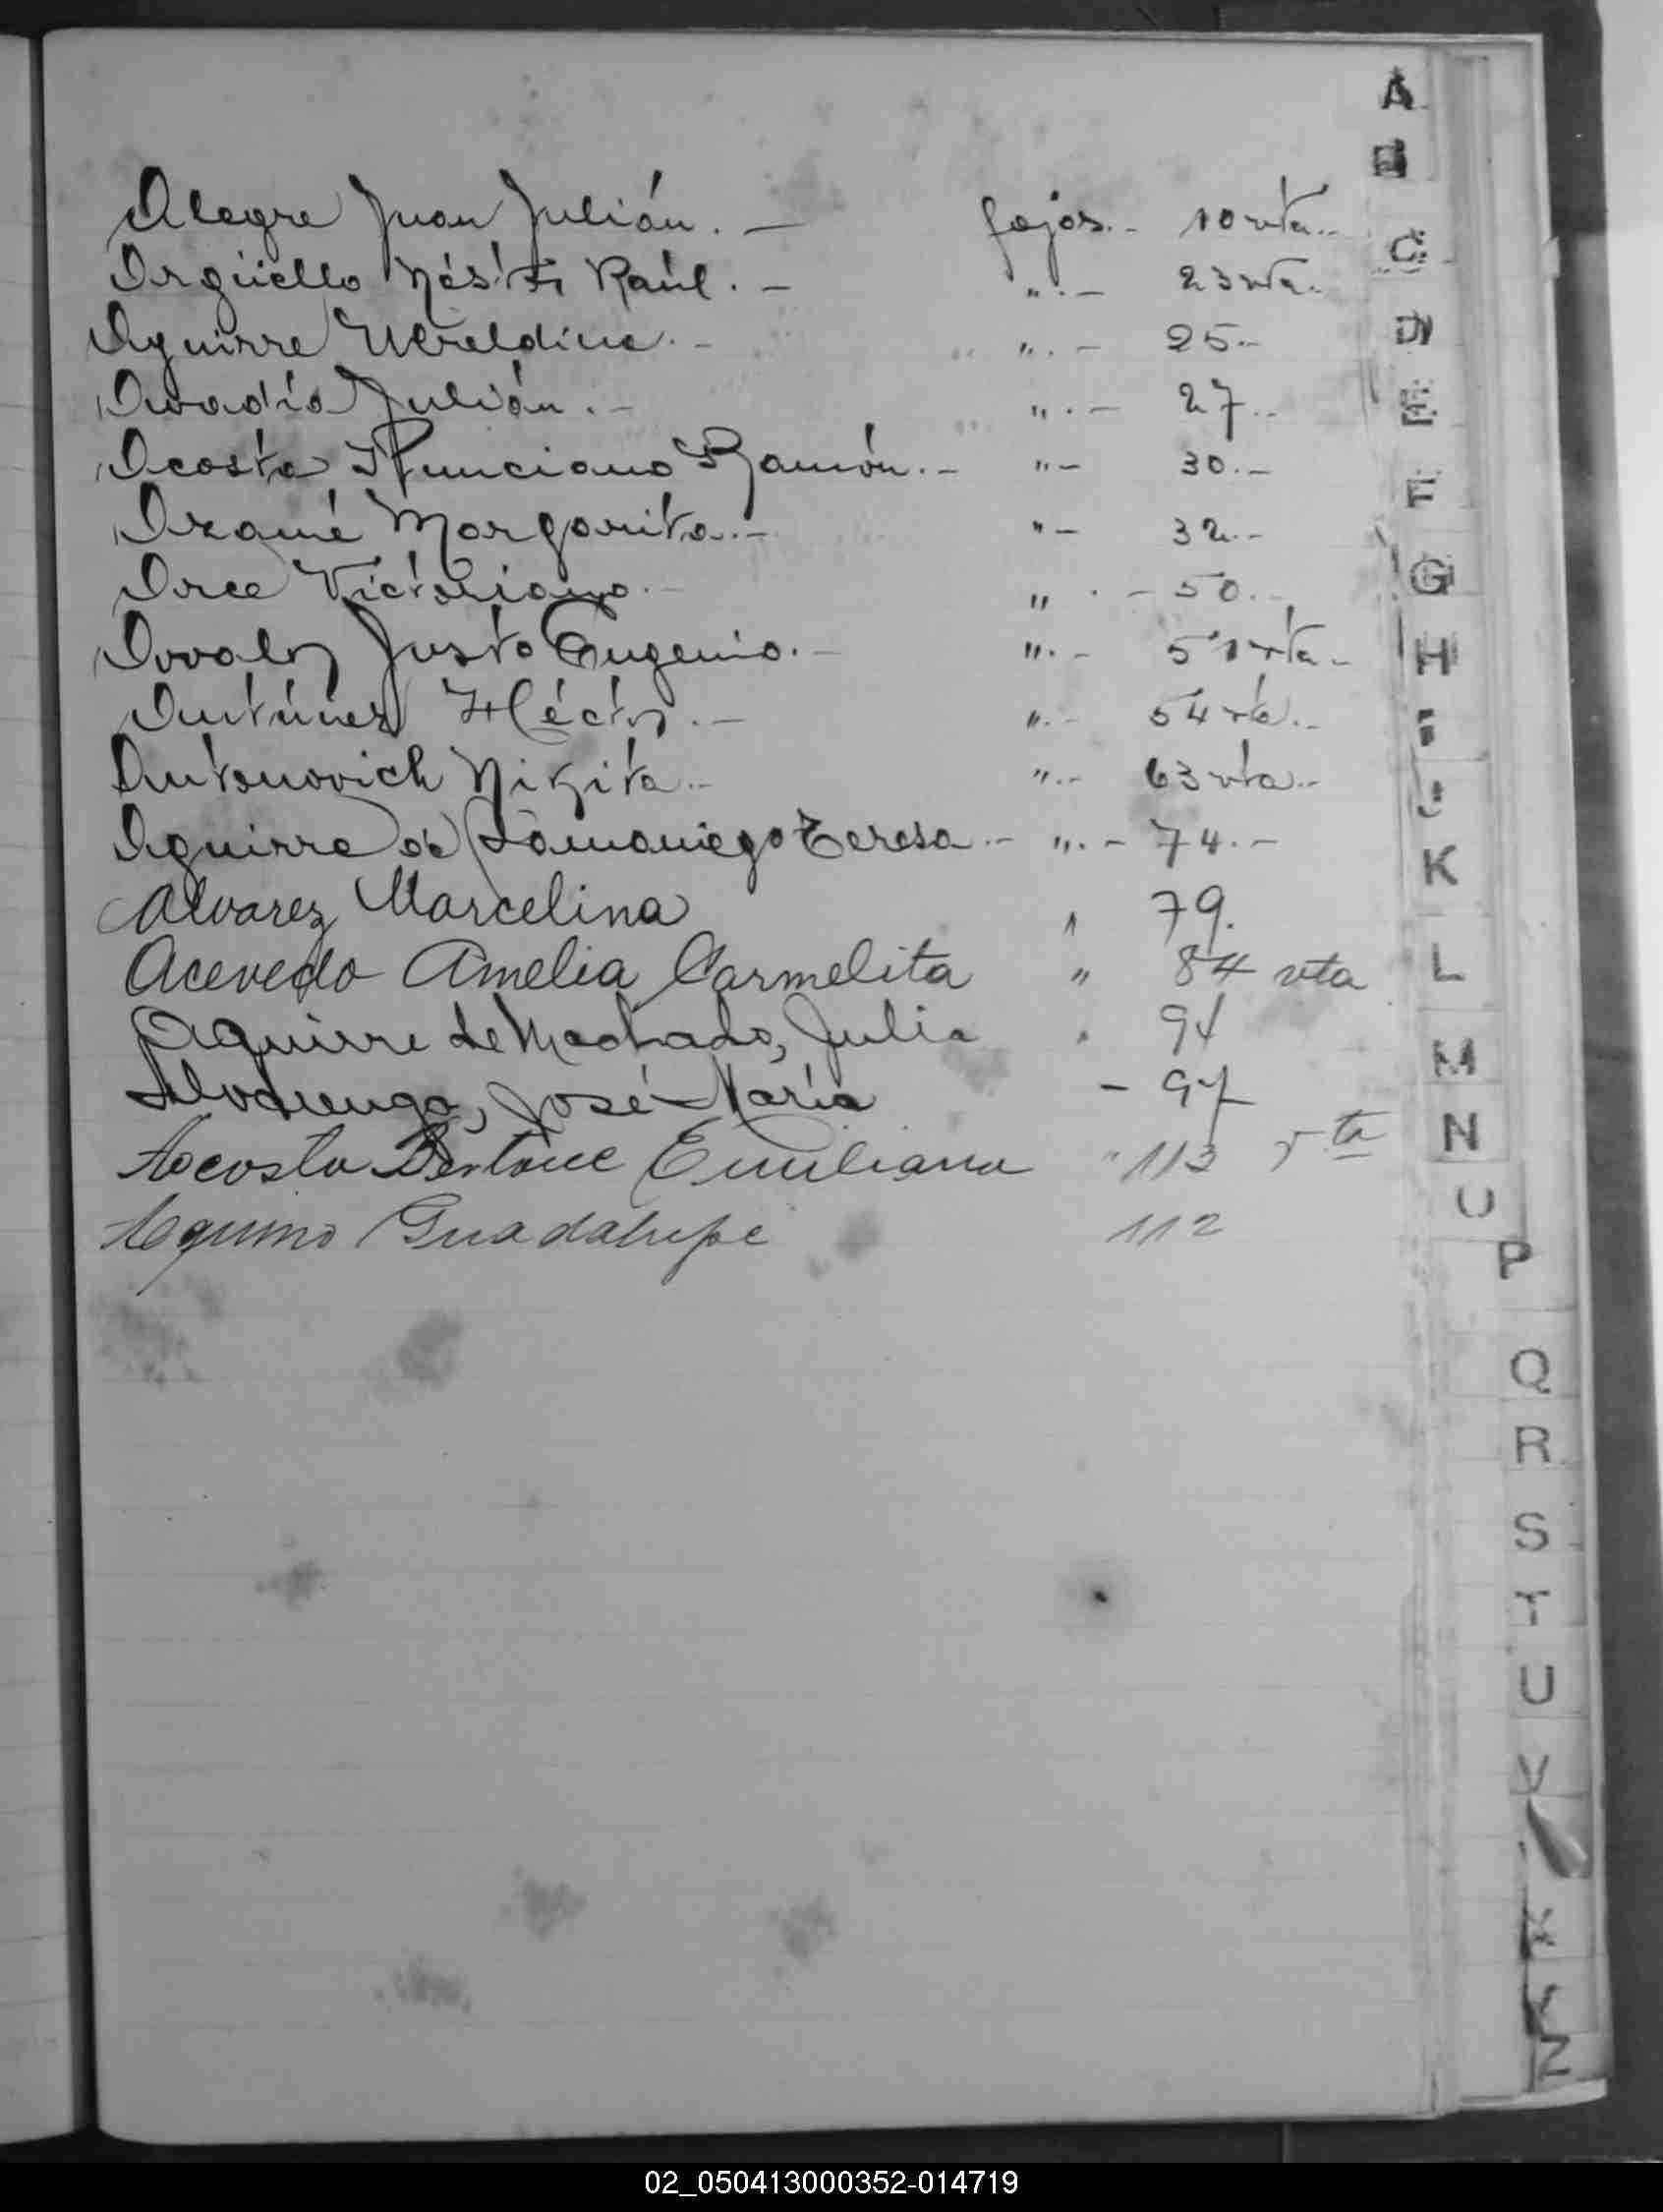 Alegre Juan Julián. — fojas.- 10 vta..
Argüello Néstor Raúl. — " . — 23 vta.
Aguirre Ubaldina. - " . — 25..
Abadía Julián. - " . — 27..
Acosta Ramón. - " — 30. —
Azamé Margarita. - " — 32. -
Arce Victoriano. - " . - 50..
Avalos Justo Eugenio. - " . - 51 vta -
Antúnez Héctor. — " . - 54 vta. -
Antonovich Nikita. - " . - 63 vta. -
Aguirre de Samaniego Teresa. - " . - 74. -
Alvarez Marcelina " 79.
Acevedo Amelia Carmelita " 84 vta
Aguirre de Machado, Julia " 94
José María - 97
Acosta Bertone Emiliana " 113 vta
Aquino Guadalupe 112
A
B
C
D
E
F
G
H
I
J
K
L
M
N
O
P
Q
R
S
T
U
V
X
Y
Z
02_050413000352-014719